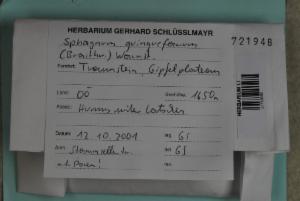 HERBARIUM GERHARD SCHLÜSSLMAYR
721948
Sphagnum quinquefarium
(Braithw.) Warnst.
Fundort: Traunstein, Gipfelplateau
Land: OÖ
Seehöhe: 1650m
Humus unter Latschen
Datum 12.10.2001
leg GS
det GS
Anm Stammzelle
m. Poren!